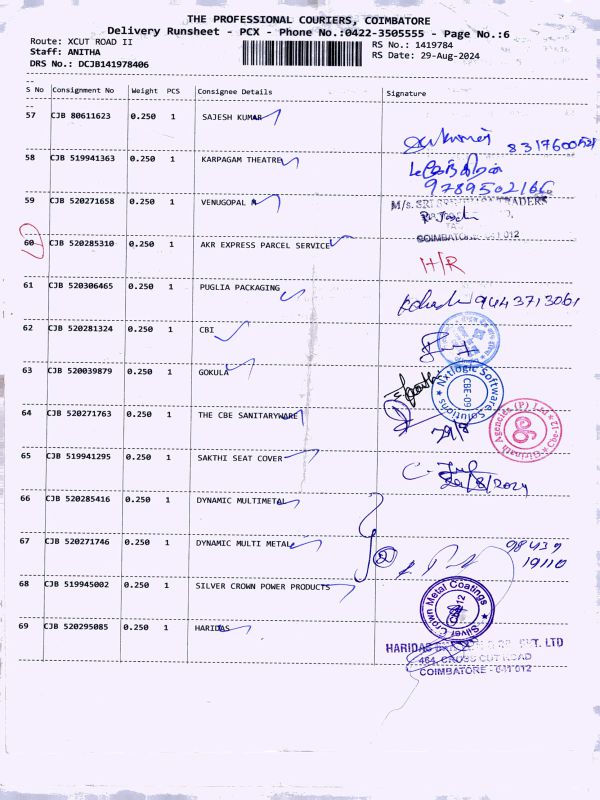 THE PROFESSIONAL COURIERS, COIMBATORE
Delivery Runsheet - PCX - Phone No.:0422-3505555 - Page No.:6
Route: XCUT ROAD II
RS No.: 1419784
Staff: ANITHA
RS Date: 29-Aug-2024
DRS No.: DCJB141978406
S No Consignment No Weight PCS Consignee Details Signature
57 CJB 80611623 0.250 1 SAJESH KUMAR
58 CJB 519941363 0.250 1 KARPAGAM THEATRE
9789502166
59 CJB 520271658 0.250 1 VENUGOPAL
M/s. SRI
COIMBATORE 641 012
60 CJB 520285310 0.250 1 AKR EXPRESS PARCEL SERVICE
H/R
61 CJB 520306465 0.250 1 PUGLIA PACKAGING
9443713061
62 CJB 520281324 0.250 1 CBI
63 CJB 520039879 0.250 1 GOKULA
Nxtlogic Software Solutions
CBE-09
64 CJB 520271763 0.250 1 THE CBE SANITARYWARE
29/8
Agencies (P) Ltd
65 CJB 519941295 0.250 1 SAKTHI SEAT COVER
29/8/2024
66 CJB 520285416 0.250 1 DYNAMIC MULTIMETAL
67 CJB 520271746 0.250 1 DYNAMIC MULTI METAL
98439
19110
68 CJB 519945002 0.250 1 SILVER CROWN POWER PRODUCTS
Silver Crown Metal Coatings
69 CJB 520295085 0.250 1 HARIDAS
HARIDAS PVT. LTD
464, CROSS CUT ROAD
COIMBATORE - 641 012